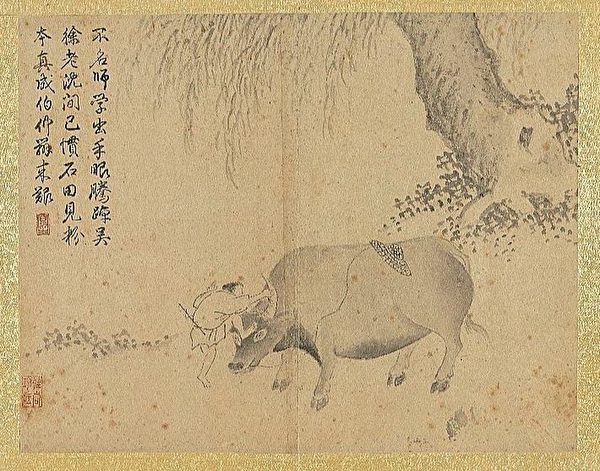 不名師學出手眼騰踔吳
徐老沈間已慣石田見粉
本真成伯仲辨來艱